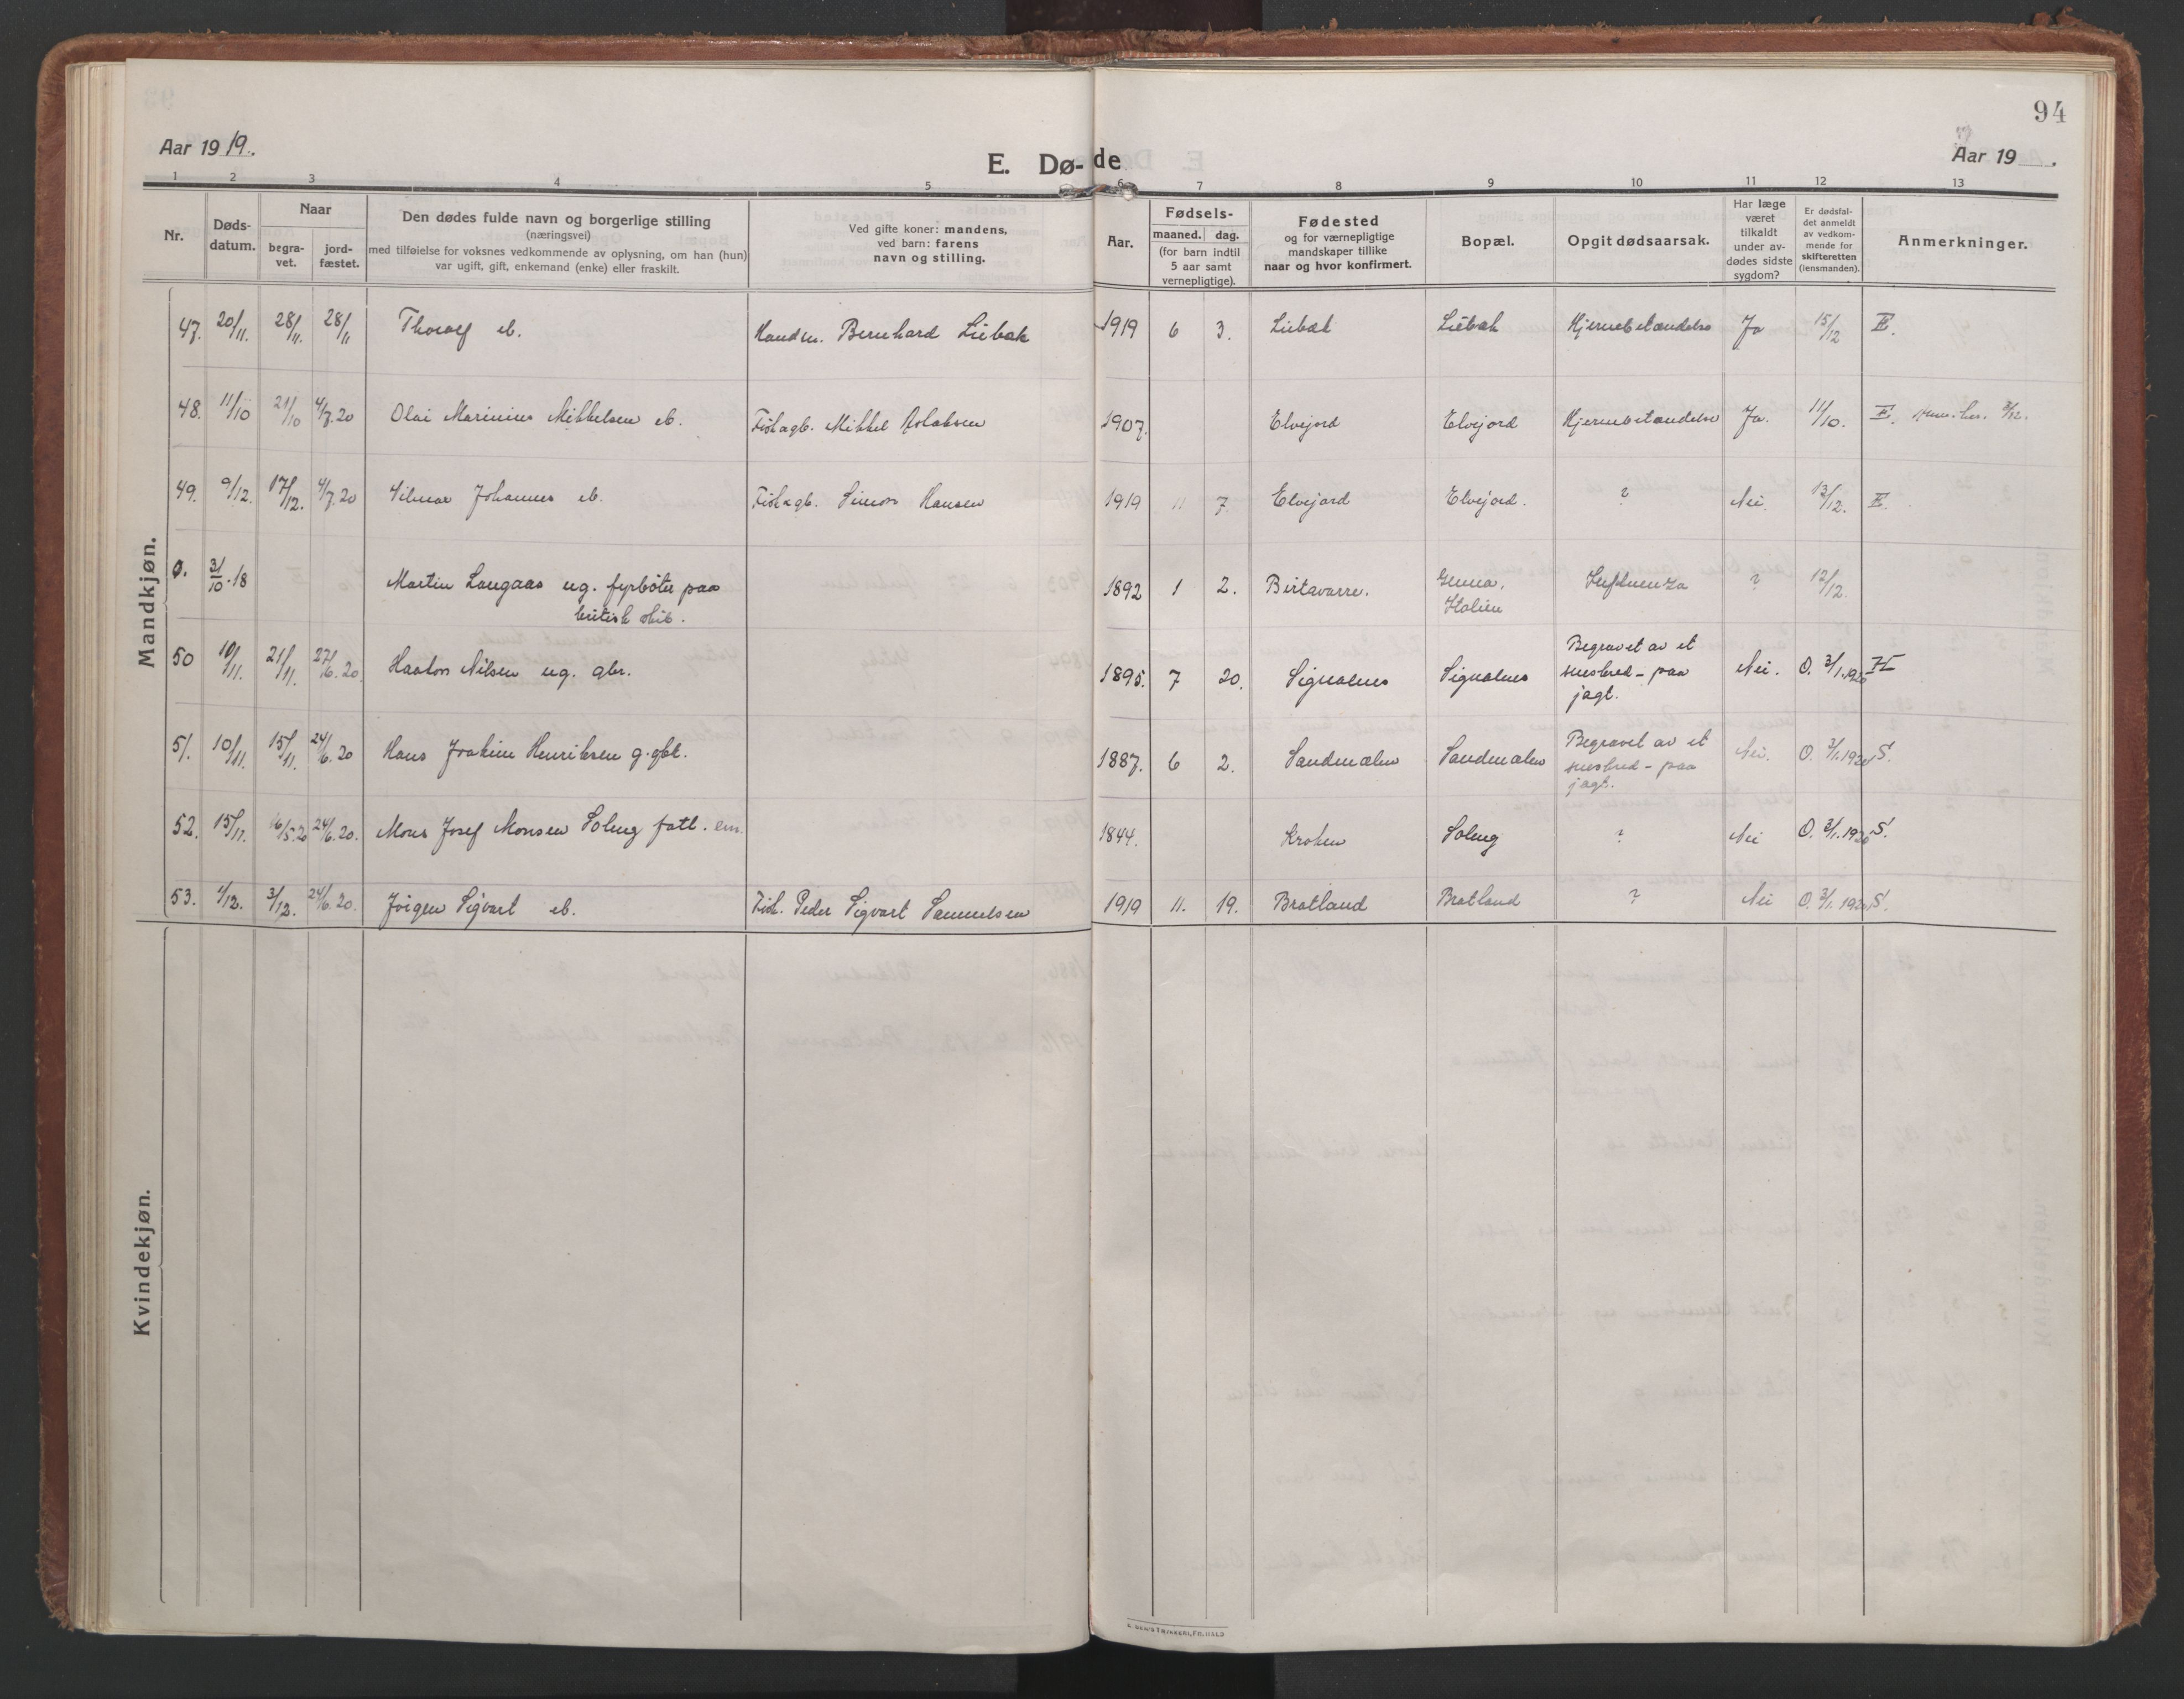 94
Aar 1919.
E. Dø-de
Aar 19 .
1 2 3 4 5 6 7 8 9 10 11 12 13
Nr.
Døds-datum.
Naar
begra-vet.
jord-fæstet.
Den dødes fulde navn og borgerlige stilling
(næringsvei)
med tilføielse for voksnes vedkommende av oplysning, om han (hun)
var ugift, gift, enkemand (enke) eller fraskilt.
Ved gifte koner: mandens,
ved barn: farens
navn og stilling.
Aar.
Fødsels-
maaned. dag.
(for barn indtil
5 aar samt
vernepligtige).
Fødested
og for værnepligtige
mandskaper tillike
naar og hvor konfirmert.
Bopæl.
Opgit dødsaarsak.
Har læge
været
tilkaldt
under av-
dødes sidste
sygdom?
Er dødsfal-
det anmeldt
av vedkom-
mende for
skifteretten
(lensmanden).
Anmerkninger.
Mandkjøn.
47. 20/11. 28/11. 28/11 Thoralf eb. Handm. Bernhard Liebak 1919 6 3. Liebak Liebak Hjernebetændelse Ja 15/12 E.
48. 11/10 21/10 4/7.20 Olai Marinius Mikkelsen eb. Fisk & gb. Mikkel Aslaksen 1907. Elvejord Elvejord Hjernebetændelse Ja. 11/10. E.
49. 9/12. 17/12. 4/7.20 Hilmar Johannes eb. Fisk & gb. Simon Hansen 1919 11 7. Elvejord Elvejord. ? Nei. 13/12. E.
0. 31/10.18 Martin Langaas ug. fyrbøter paa
britisk skib. 1892 1 2. Birtavarre. Genua,
Italien Influenza ? 12/12.
50 10/11. 21/11. 27/6.20. Haakon Nilsen ug. gbr. 1895. 7 20. Signalnes Signalnes Begravet av et
snesbred - paa
jagt. Nei. O. 3/1.1920 H
51. 10/11. 15/11. 24/6.20 Hans Joakim Henriksen g. gbr. 1887. 6 2. Sandmælen Sandmælen Begravet av et
snesbred - paa
jagt. Nei. O. 3/1.1920 S.
52. 15/12. 16/5.20 24/6.20. Mons Josef Monsen Soleng fatl. em. 1844. Kroken Soleng ? Nei O. 3/1.1920 S.
53. 1/12. 3/12. 24/6.20. Jørgen Sigvart eb. Fisk. Peder Sigvart Samuelsen 1919 11. 19. Bratland Bratland ? Nei O. 3/1.1920 S.
Kvindekjøn.